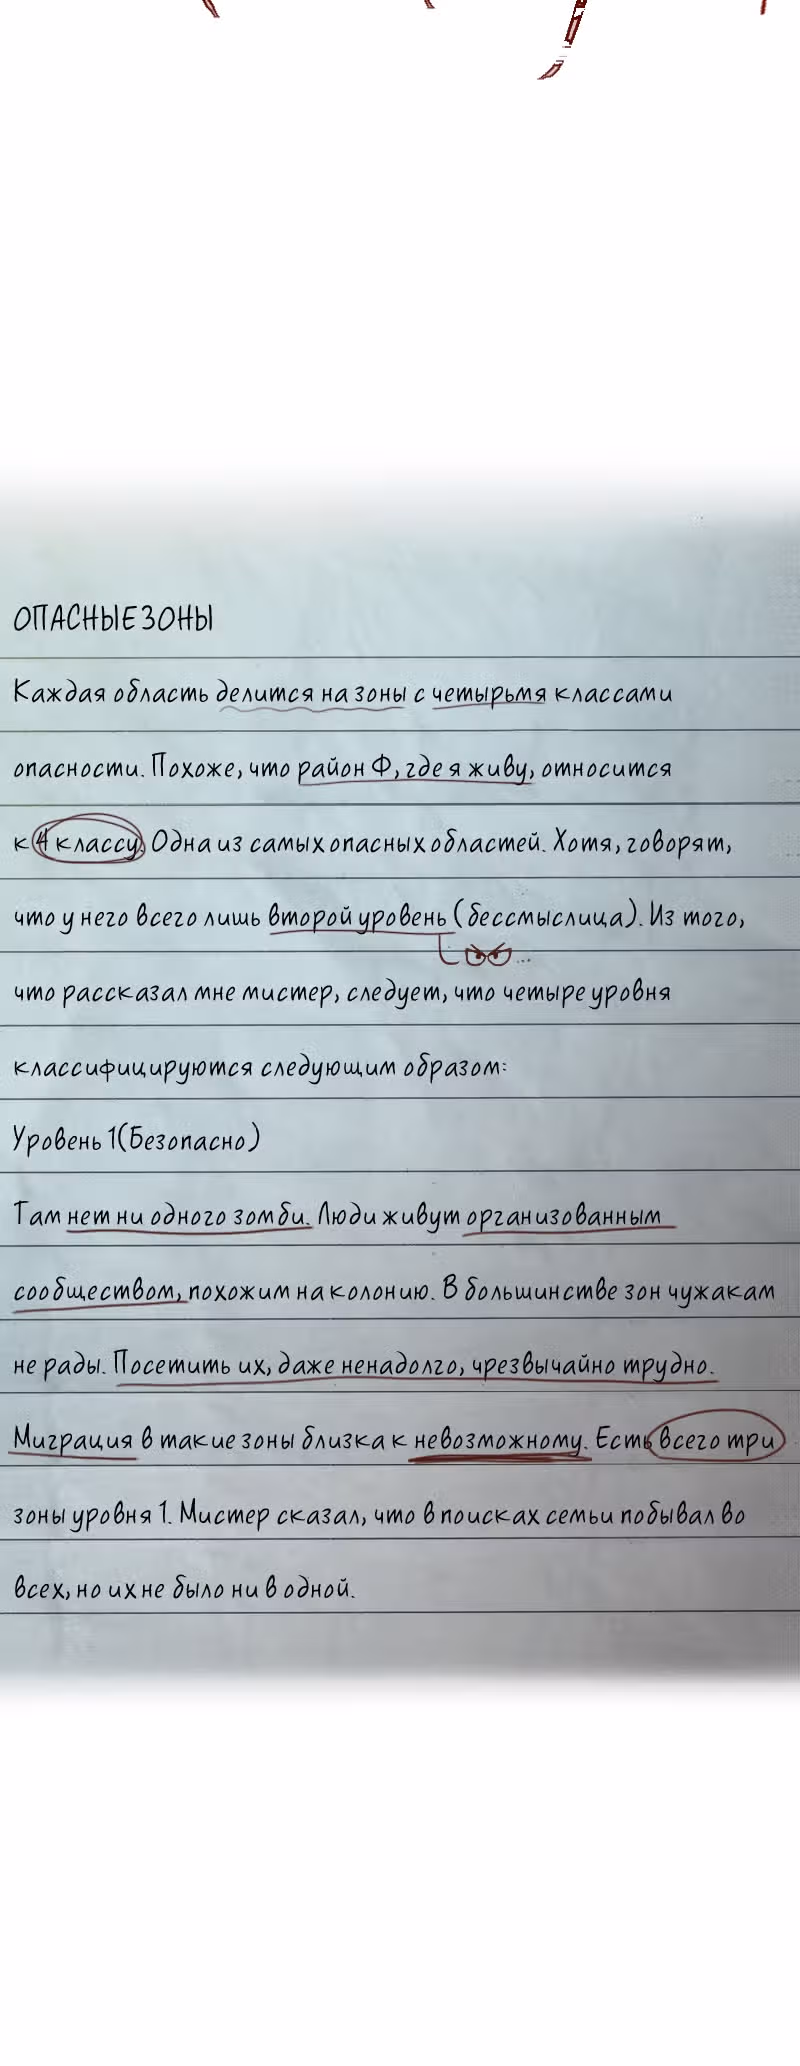 ОПАСНЫЕ ЗОНЫ
Каждая область делится на зоны с четырьмя классами
опасности. Похоже, что район Ф, где я живу, относится
к 4 классу. Одна из самых опасных областей. Хотя, говорят,
что у него всего лишь второй уровень (бессмыслица). Из того,
что рассказал мне мистер, следует, что четыре уровня
классифицируются следующим образом:
Уровень 1 (Безопасно)
Там нет ни одного зомби. Люди живут организованным
сообществом, похожим на колонию. В большинстве зон чужакам
не рады. Посетить их, даже ненадолго, чрезвычайно трудно.
Миграция в такие зоны близка к невозможному. Есть всего три
зоны уровня 1. Мистер сказал, что в поисках семьи побывал во
всех, но их не было ни в одной.